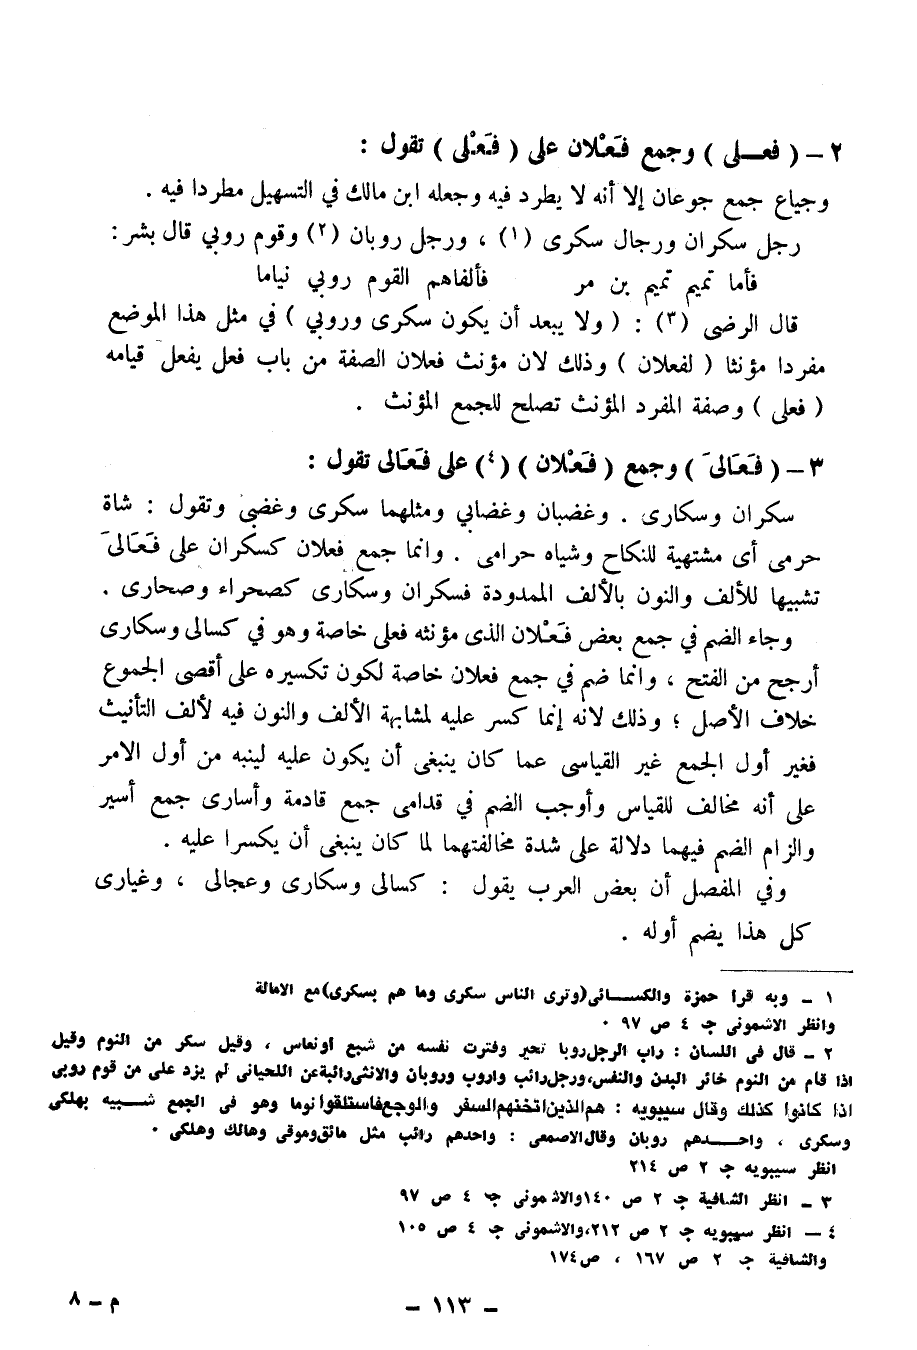 ٢ – ( فعــلى ) وجمع فَعْلان على ( فَعْلى ) تقول :
وجياع جمع جوعان إلا أنه لا يطرد فيه وجعله ابن مالك في التسهيل مطردا فيه .
رجل سكران ورجال سكرى (١) ، ورجل روبان (٢) وقوم روبي قال بشر :
فأما تميم تميم بن مر فألفاهم القوم روبي نياما
قال الرضى (٣) : ( ولا يبعد أن يكون سكرى وروبي ) في مثل هذا الموضع
مفردا مؤنثا ( لفعلان ) وذلك لان مؤنث فعلان الصفة من باب فعل يفعل قيامه
( فعلى ) وصفة المفرد المؤنث تصلح للجمع المؤنث .
٣ – ( فَعَالىَ ) وجمع ( فَعْلان ) (٤) على فَعَالى تقول :
سكران وسكارى . وغضبان وغضابي ومثلهما سكرى وغضبى وتقول : شاة
حرمى أى مشتهية للنكاح وشياه حرامى . وانما جمع فعلان كسكران على فَعَالىَ
تشبيها للألف والنون بالألف الممدودة فسكران وسكارى كصحراء وصحارى .
وجاء الضم في جمع بعض فَعْلان الذى مؤنثه فعلى خاصة وهو في كسالى وسكارى
أرجح من الفتح ، وانما ضم في جمع فعلان خاصة لكون تكسيره على أقصى الجموع
خلاف الأصل ؛ وذلك لانه إنما كسر عليه لمشابهة الألف والنون فيه لألف التأنيث
فغير أول الجمع غير القياسى عما كان ينبغى أن يكون عليه لينبه من أول الامر
على أنه مخالف للقياس وأوجب الضم في قدامى جمع قادمة وأسارى جمع أسير
والزام الضم فيهما دلالة على شدة مخالفتهما لما كان ينبغى أن يكسرا عليه .
وفي المفصل أن بعض العرب يقول : كسالى وسكارى وعجالى ، وغيارى
كل هذا يضم أوله .
١ – وبه قرا حمزة والكســـائى(وترى الناس سكرى وما هم بسكرى)مع الامالة
وانظر الاشمونى ج ٤ ص ٩٧ ٠
٢ – قال فى اللسان : راب الرجل روبا تحير وفترت نفسه من شبع أونعاس ، وقيل سكر من النوم وقيل
اذا قام من النوم خاثر البدن والنفس،ورجل رائب واروب وروبان والانثى رائبة عن اللحيانى لم يزد على من قوم روبى
اذا كانوا كذلك وقال سيبويه : هم الذين اثخنهم السفر والوجع فاستثقلوا نوما وهو فى الجمع شـــبيه بهلكى
وسكرى ، واحـــدهم روبان وقال الاصمعى : واحدهم رائب مثل مائق وموقى وهالك وهلكى ٠
انظر سيبويه ج ٢ ص ٢١٤
٣ – انظر الشافية ج ٢ ص ١٤٠ والاشمونى ج ٤ ص ٩٧
٤ – انظر سيبويه ج ٢ ص ٢١٢،والاشمونى ج ٤ ص ١٠٥
والشافية ج ٢ ص ١٦٧ ، ص١٧٤
– ١١٣ –
م – ٨